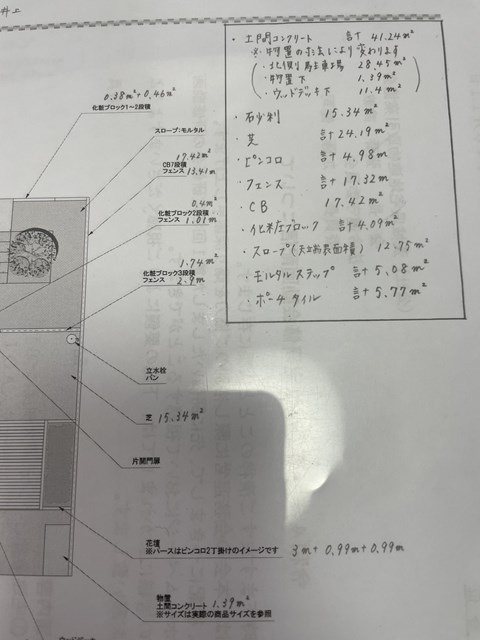 井上
・土間コンクリート 計 41.24m²
※物置の寸法により変わります
・北側駐車場 28.45m²
・物置下 1.39m²
・ウッドデッキ下 11.4m²
・砂利 15.34m²
・芝 計24.19m²
・ピンコロ 計4.98m
・フェンス 計17.32m
・CB 17.42m²
・化粧ブロック 計4.09m²
・スロープ(左右表面積) 12.75m²
・モルタルステップ 計5.08m²
・ポーチタイル 計5.77m²
0.38m²+0.46m²
化粧ブロック1~2段積
スロープ:モルタル
17.42m²
CB7段積
フェンス 13.41m
0.4m²
化粧ブロック2段積
フェンス 1.01m
1.74m²
化粧ブロック3段積
フェンス 2.9m
立水栓
パン
芝 15.34m²
片開門扉
花壇
※パースはピンコロ2丁掛けのイメージです 3m+0.99m+0.99m
物置
土間コンクリート 1.39m²
※サイズは実際の商品サイズを参照